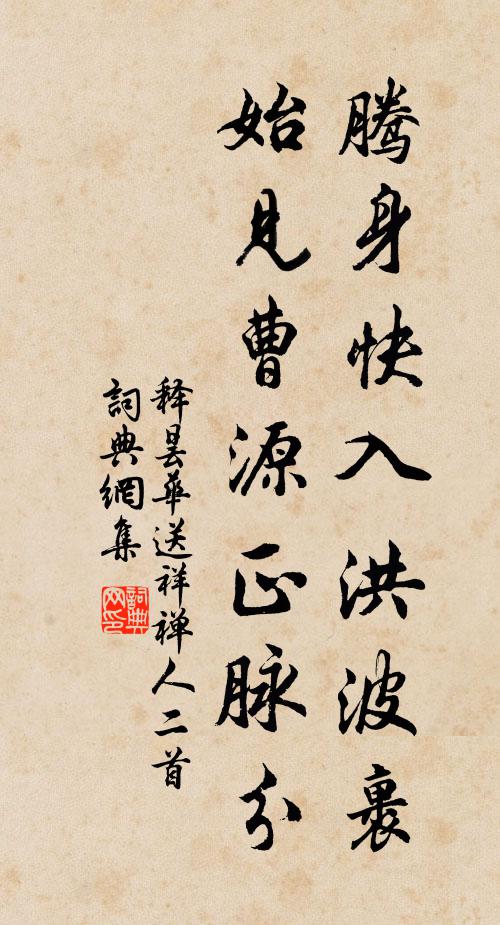 騰身快入洪波裹
始見曹源正脉分
释曇華送祥禅人二首
詞典網集
詞典网印